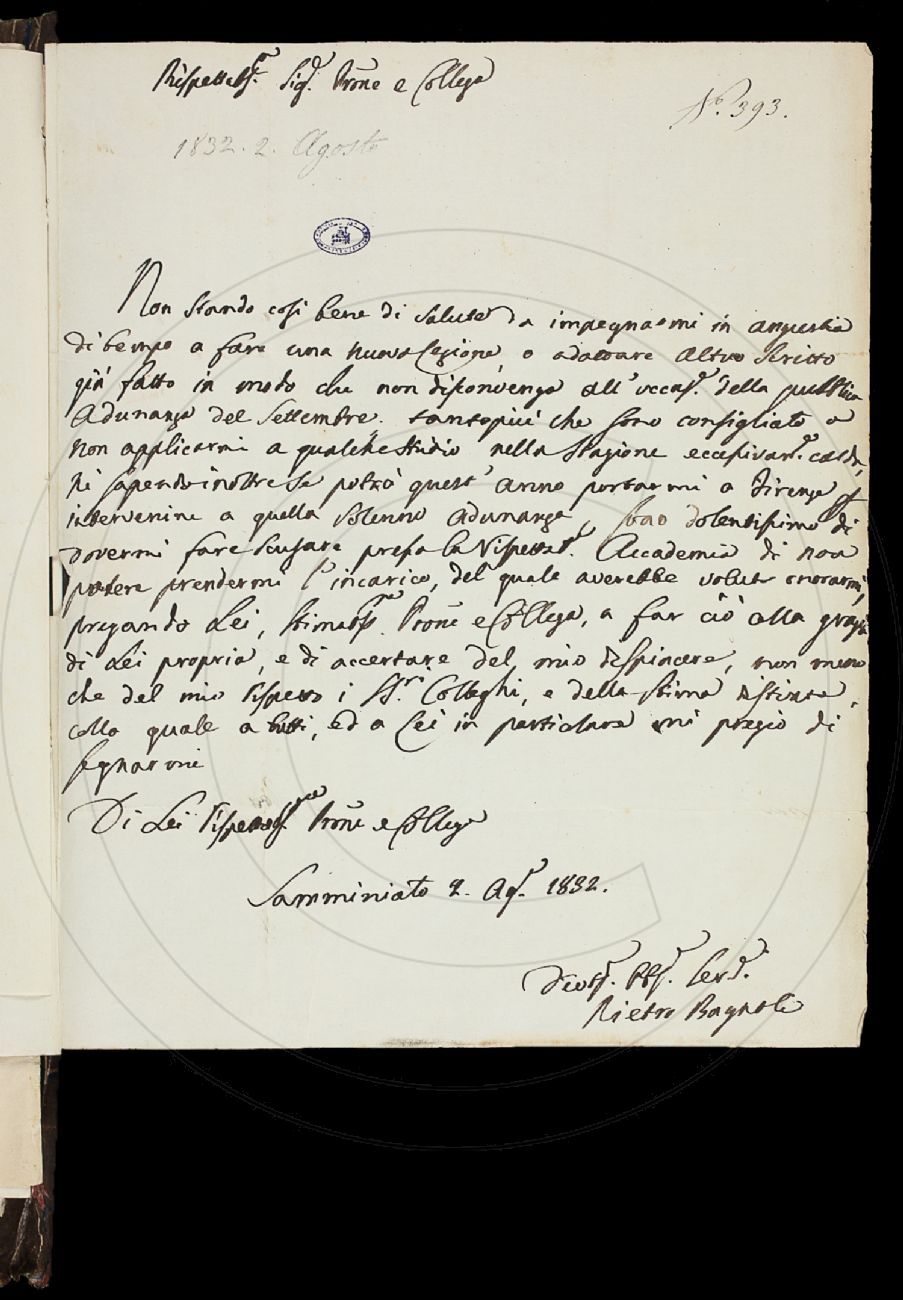 Rispettabil.e Sig.r Prõne e Collega
N.o 393.
1832. 2. Agosto
Non stando così bene di salute da impegnarmi in angustia
di tempo a fare una nuova Lezione, o adattare altro Scritto
già fatto in modo che non disconvenga all'occas.e della pubblica
Adunanza del Settembre. tantopiù che sono consigliato a
non applicarmi a qualche studio nella Stagione eccessivam.e calda,
Nè sapendo inoltre se potrò quest'anno portarmi a Firenze per
intervenire a quella solenne adunanza, sono dolentissimo di
dovermi fare scusare presso la Rispettab.e Accademia di non
potere prendermi l'incarico, del quale averebbe voluto onorarmi,
pregando Lei, Stimatiss.mo Prõne e Collega, a far ciò colla grazia
di Lei propria, e di accertare del mio dispiacere, non meno
che del mio rispetto i SS.ri Colleghi, e della stima distinta,
colla quale a tutti, ed a Lei in particolare mi pregio di
segnarmi
Di Lei Rispettabiliss.mo Prõne e Collega
Samminiato 2. Ag.o 1832.
Devotiss.o Obb.o Ser.e
Pietro Bagnoli